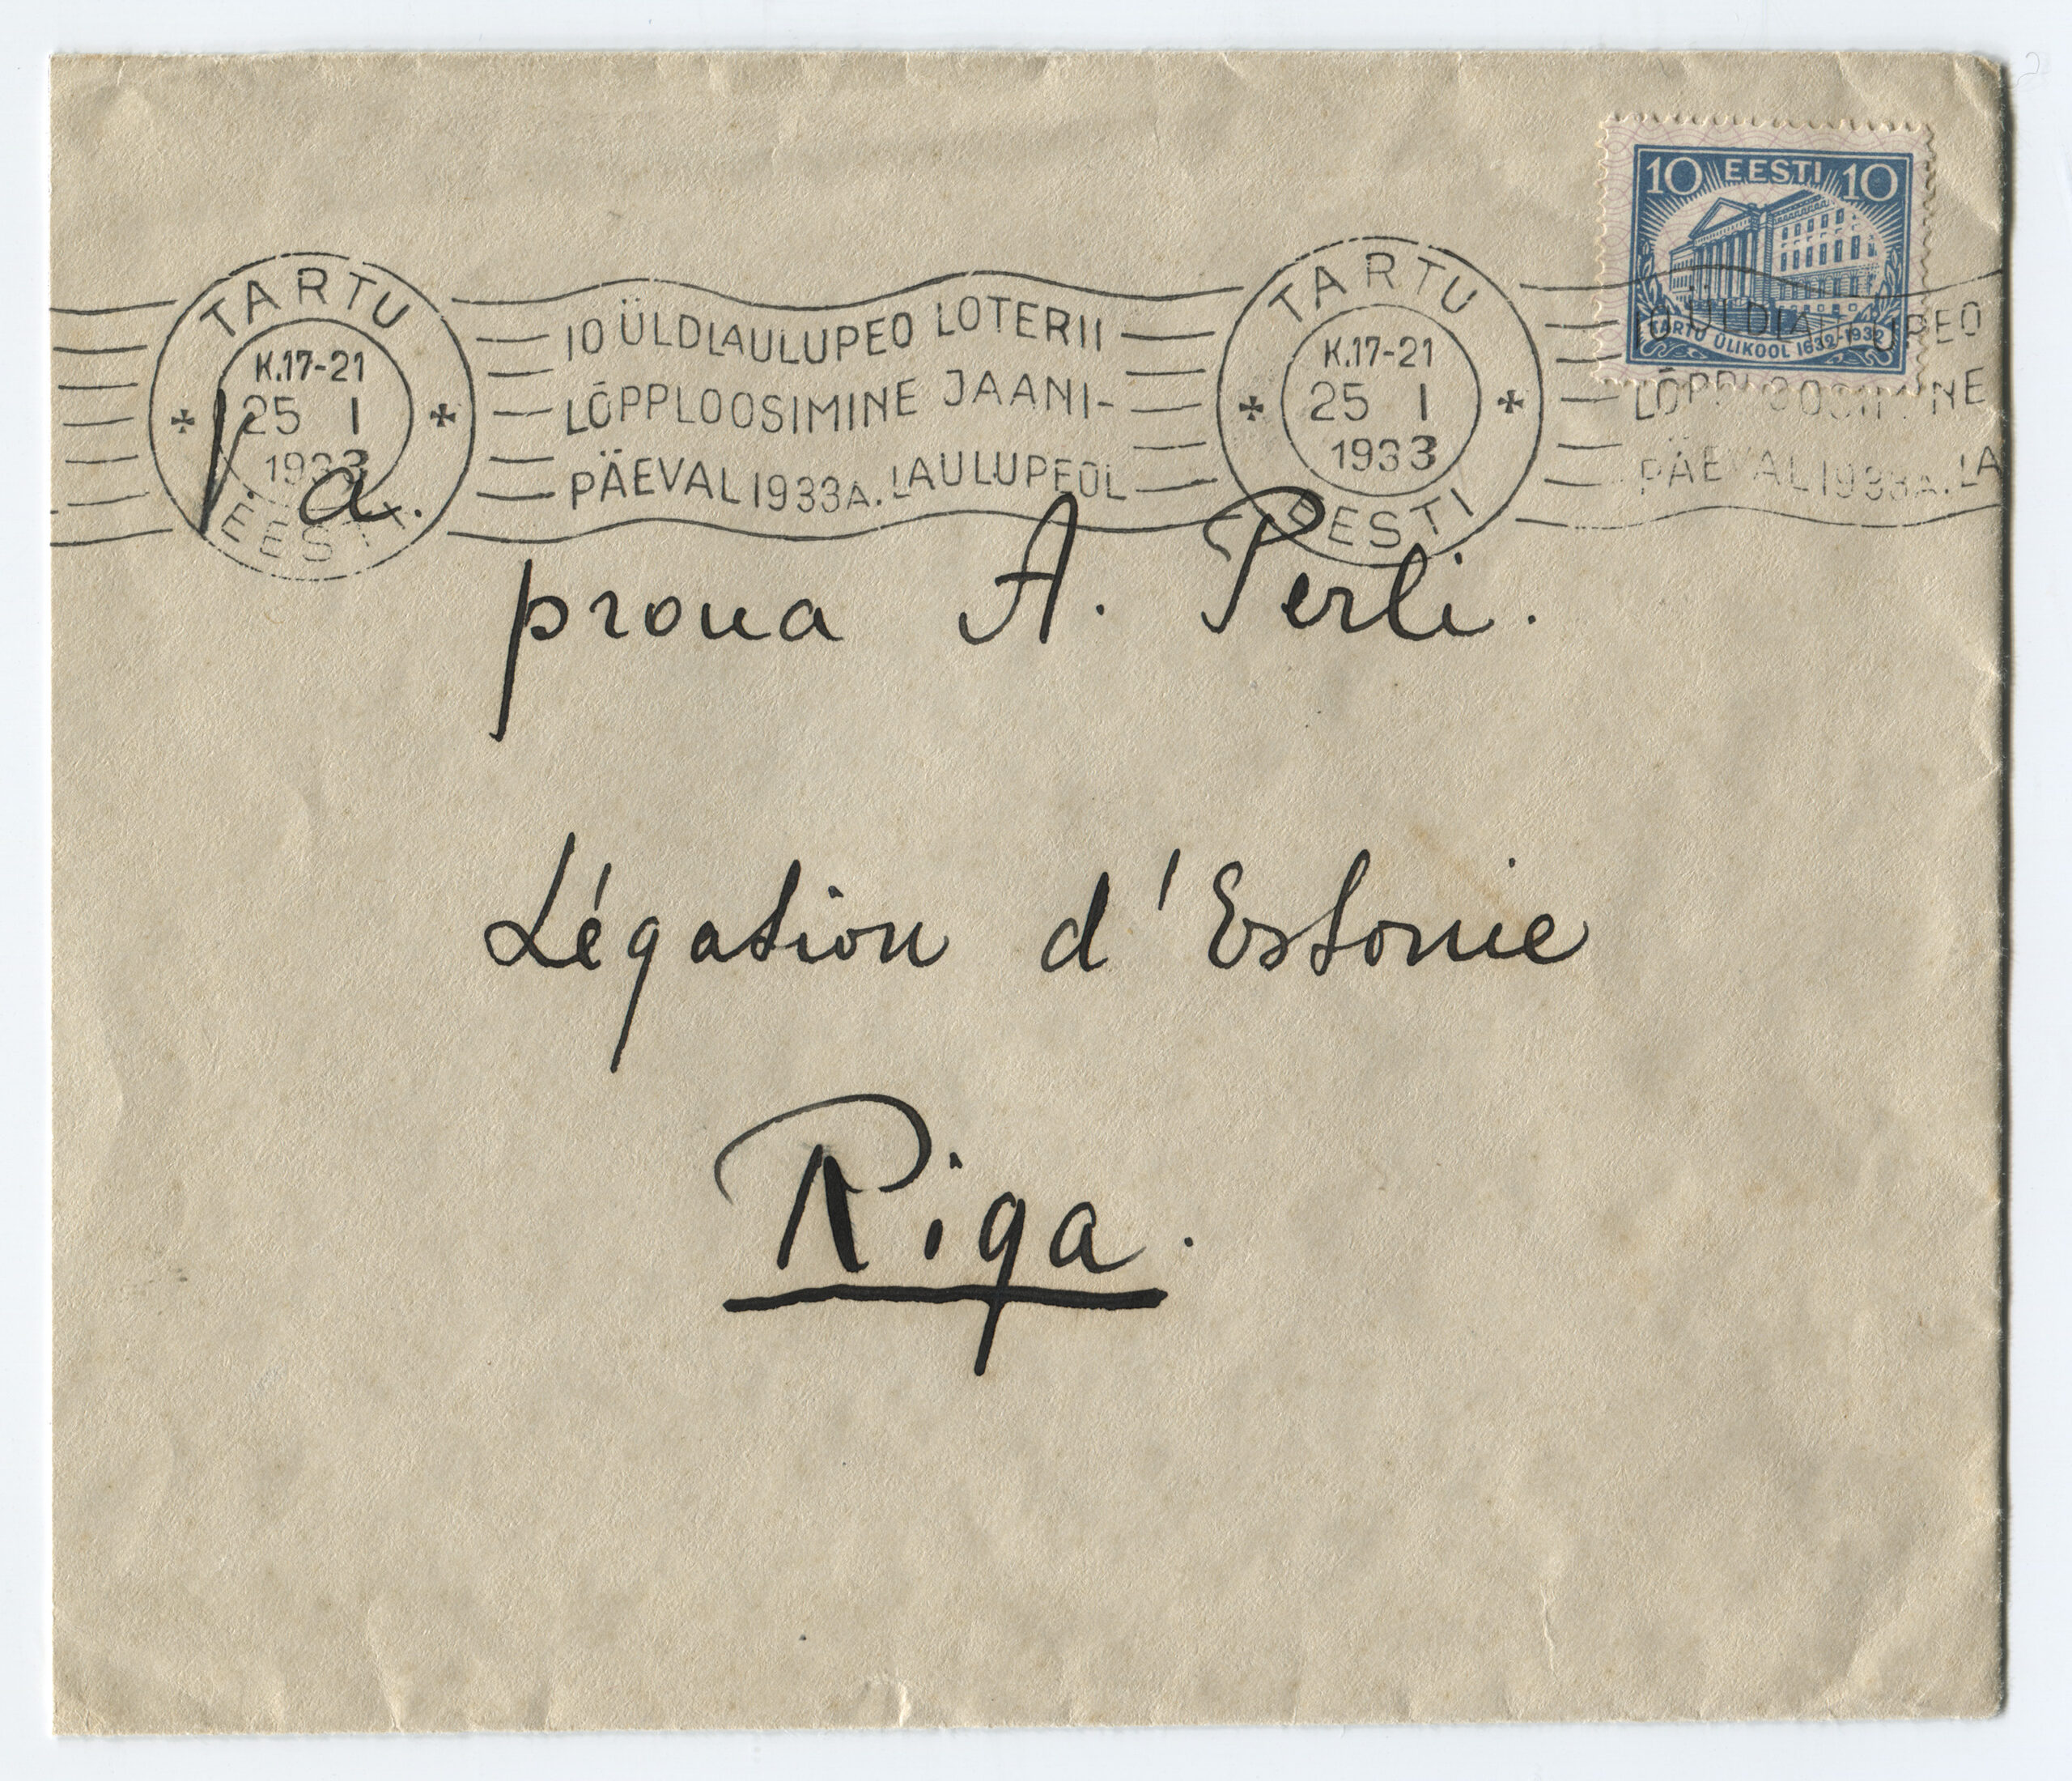 10 EESTI 10
TARTU ÜLIKOOL 1632-1932
TARTU
K.17-21
25 I
1933
EESTI
10 ÜLDLAULUPEO LOTERII
LÕPPLOOSIMINE JAANI-
PÄEVAL 1933A. LAULUPEOL
TARTU
K.17-21
25 I
1933
EESTI
10 ÜLDLAULUPEO
LÕPPLOOSIMINE
PÄEVAL 1933A. LA
Pr. a.
proua A. Perli.
Légation d'Estonie
Riga.